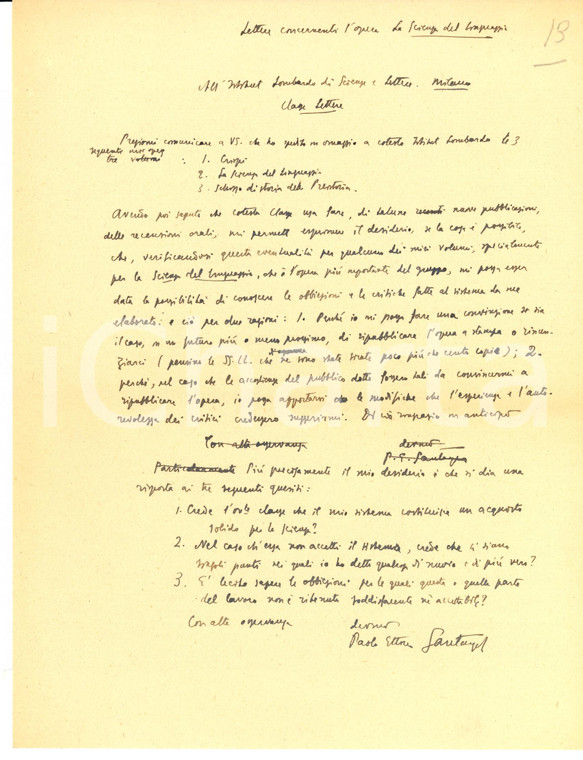 Lettere concernenti l'opera La Scienza del Linguaggio
13
All'Istituto Lombardo di Scienze e Lettere. Milano
Classe Lettere
Pregiomi comunicare a VS. che ho spedito in omaggio a cotesto Istituto Lombardo le 3
seguenti mie opere
tre volumi : 1. Crispi
2. La Scienza del Linguaggio
3. Schizzo di storia della Preistoria.
Avendo poi saputo che cotesta Classe usa fare, di talune recenti nuove pubblicazioni,
delle recensioni orali, mi permetto esprimere il desiderio, se la cosa è possibile,
che, verificandosi questa eventualità per qualcuno dei miei volumi, specialmente
per la Scienza del Linguaggio, che è l'opera più importante del gruppo, mi possa esser
data la possibilità di conoscere le obbiezioni e le critiche fatte al sistema da me
elaborato: e ciò per due ragioni: 1. Perché io mi possa fare una convinzione se sia
il caso, in un futuro più o meno prossimo, di ripubblicare l'opera a stampa o rinun-
ziarci (pensino le SS.LL. che ne sono state tirate poco più che cento copie); 2.
perché, nel caso che le accoglienze del pubblico dotto fossero tali da convincermi a
ripubblicare l'opera, io possa apportarvi le modifiche che l'esperienza e l'auto-
revolezza dei critici credessero suggerirmi. Di ciò ringrazio in anticipo
Con alta osservanza devmo
P. E. Santangelo
Particolarmente Più precisamente il mio desiderio è che si dia una
risposta ai tre seguenti quesiti:
1. Crede l'on.le classe che il mio sistema costituisca un acquisto
solido per la scienza?
2. Nel caso ch'essa non accetti il sistema, crede che ci siano
singoli punti nei quali io ho detto qualcosa di nuovo e di più vero?
3. E' lecito sapere le obbiezioni per le quali questa o quella parte
del lavoro non è ritenuta soddisfacente né accettabile?
Con alta osservanza devmo
Paolo Ettore Santangelo